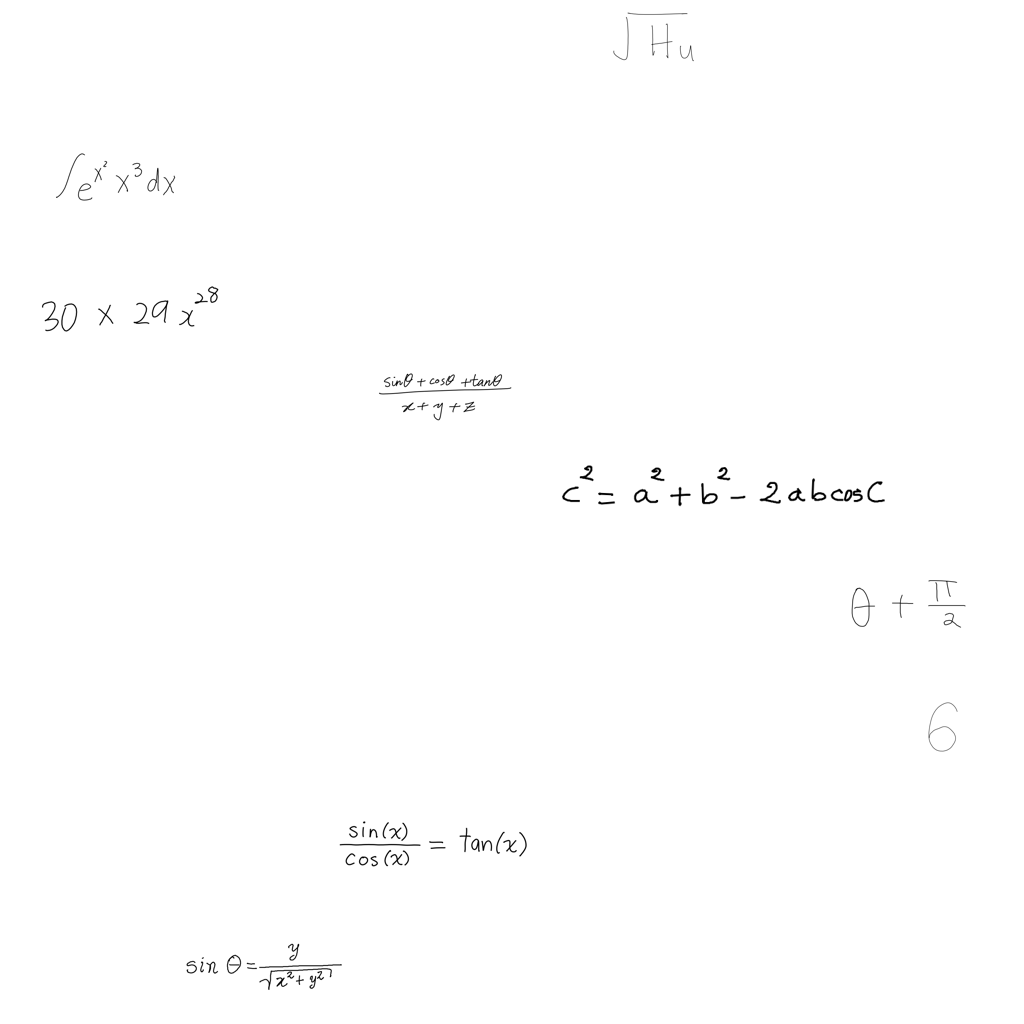 \sqrt{Hu}
\int e^{x^2} x^3 dx
30 \times 29 x^{28}
\frac{\sin\theta + \cos\theta + \tan\theta}{x + y + z}
c^2 = a^2 + b^2 - 2ab\cos C
\theta + \frac{\pi}{2}
6
\frac{\sin(x)}{\cos(x)} = \tan(x)
\sin\theta = \frac{y}{\sqrt{x^2 + y^2}}